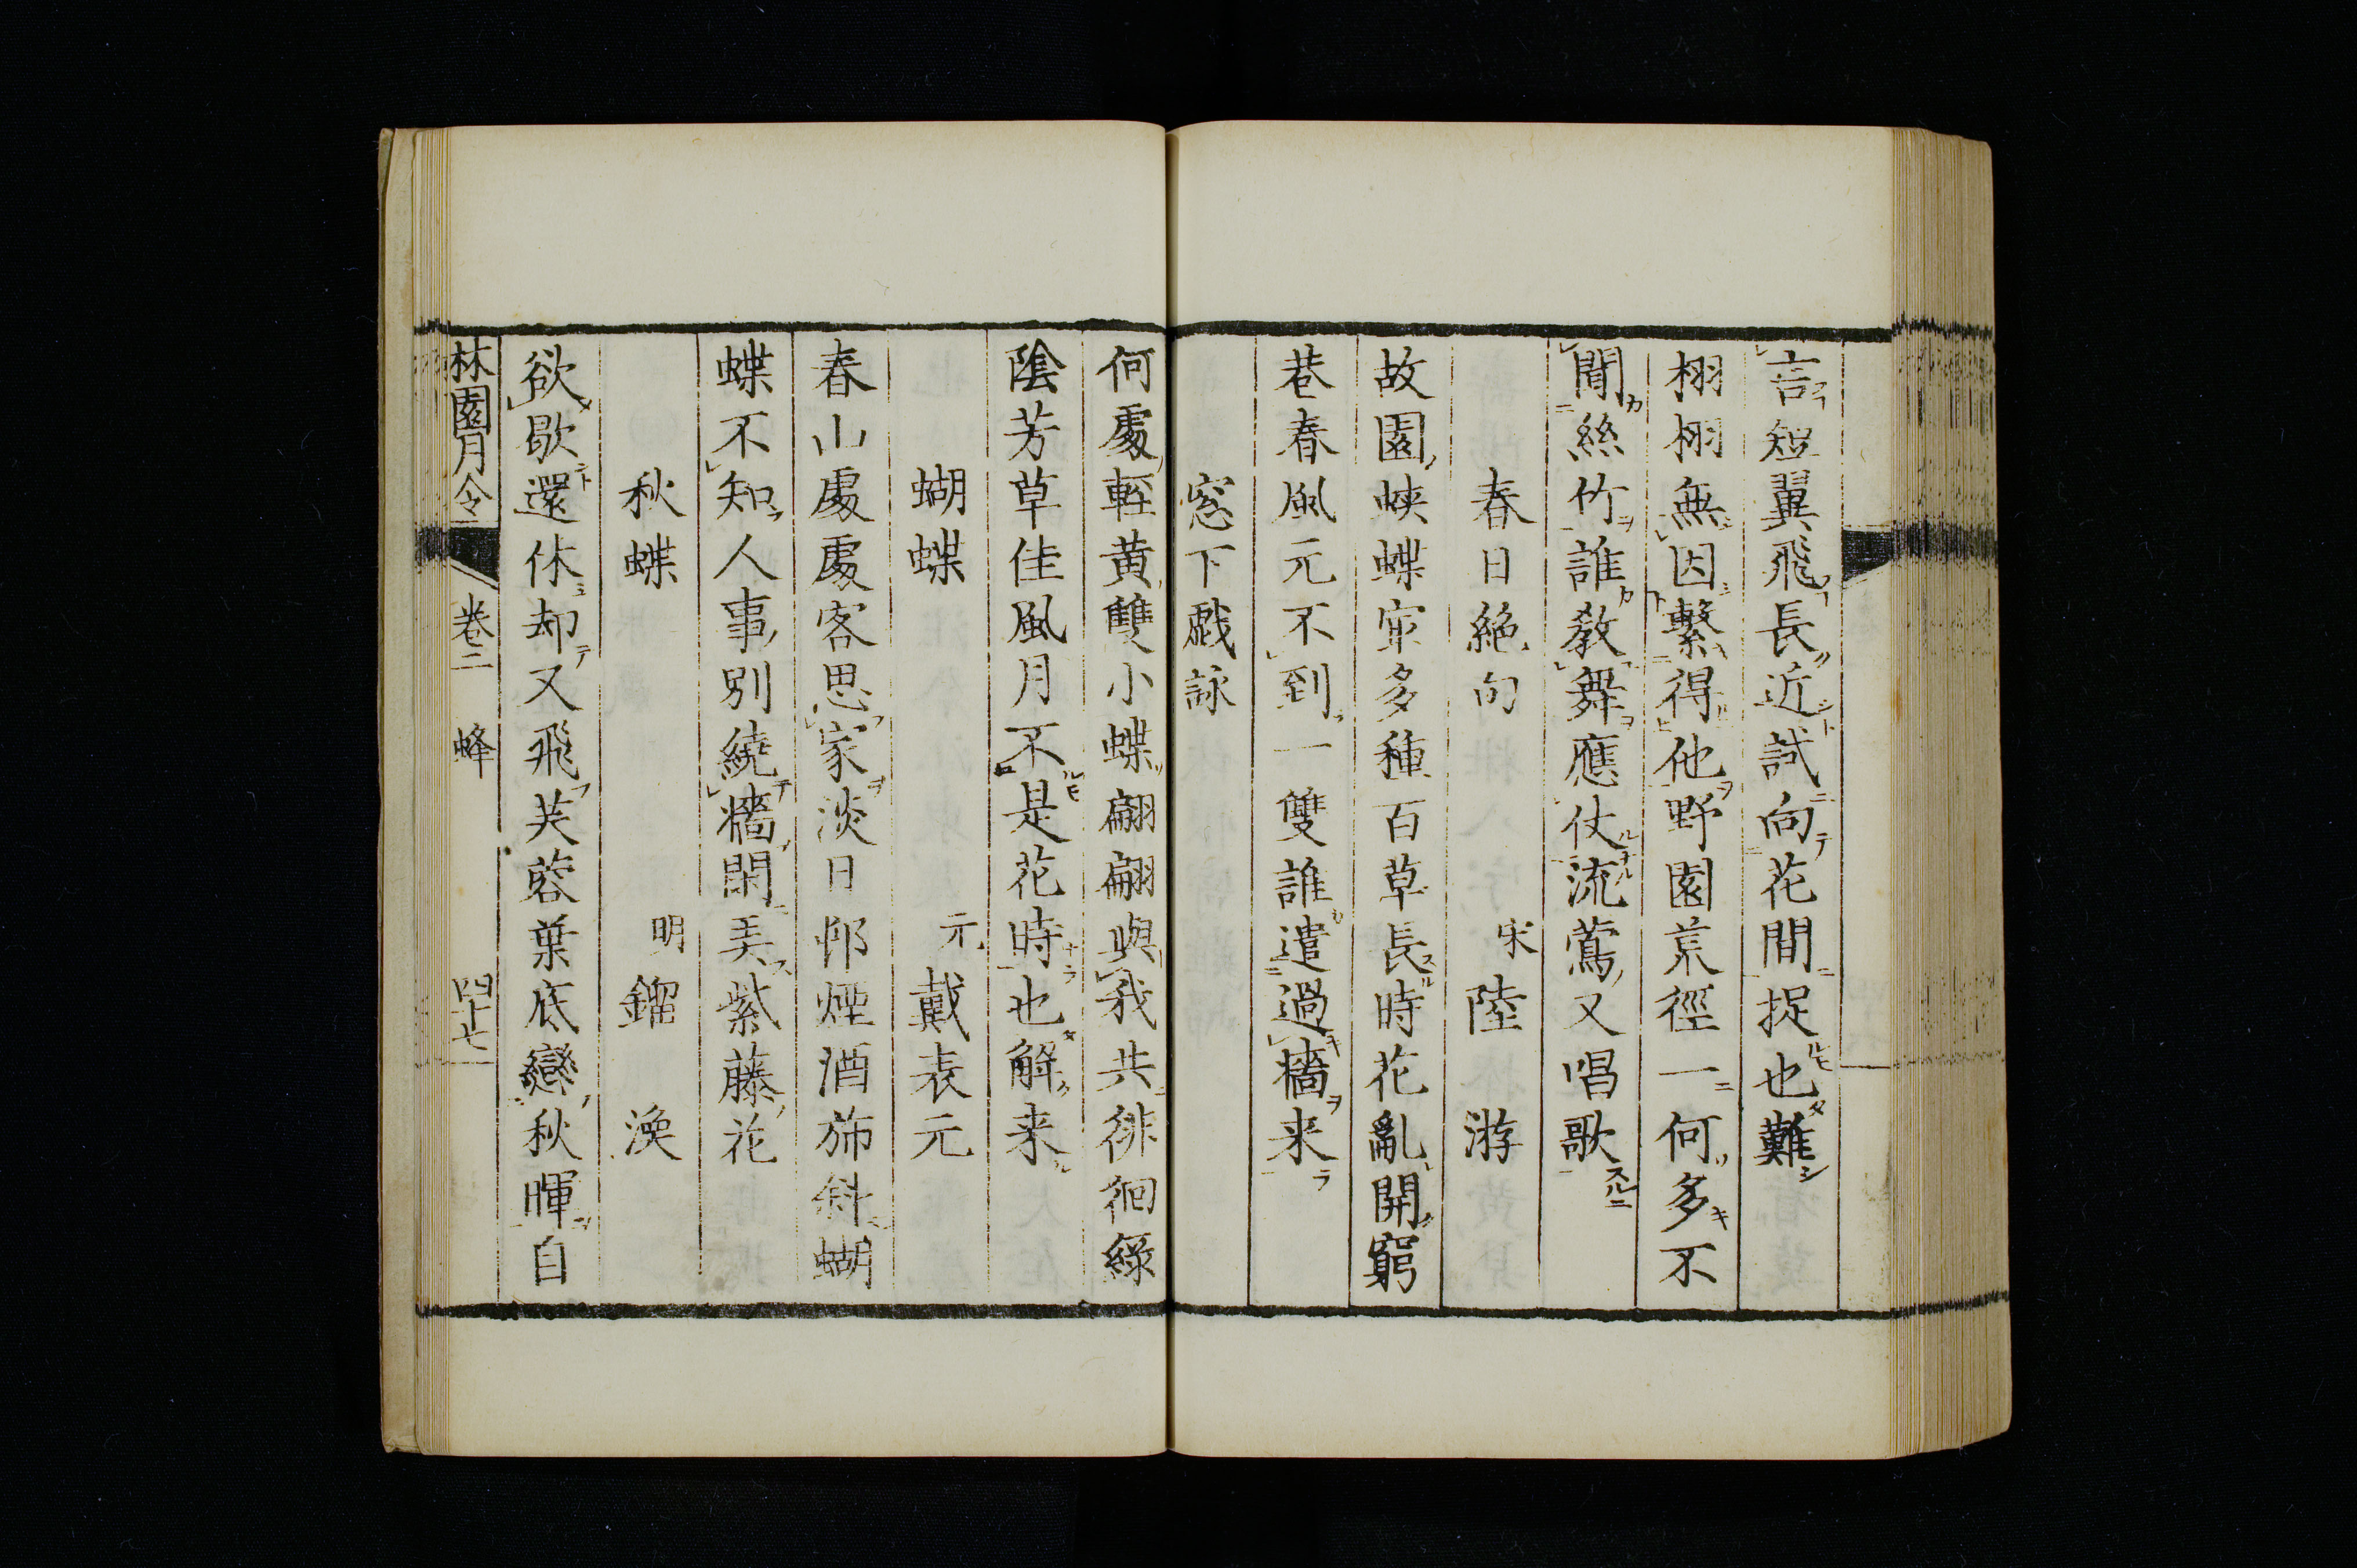 言短翼飛長近試向花間捉也難
栩栩無因繫得他野園荒徑一何多不
聞絲竹誰教舞應仗流鶯又唱歌
春日絶句 宋 陸游
故園蛺蝶寀多種百草長時花亂開窮
巷春風元不到一雙誰遣過牆来
窓下戯詠
何處輕黄雙小蝶翩翩與我共徘徊綠
陰芳草佳風月不是花時也解来
蝴蝶 元 戴表元
春山處處客思家淡日邨煙酒斾斜蝴
蝶不知人事別繞牆閑弄紫藤花
秋蝶 明 鎦渙
欲歇還休却又飛芙蓉葉底戀秋暉自
林園月令 卷二 蜂 四十七